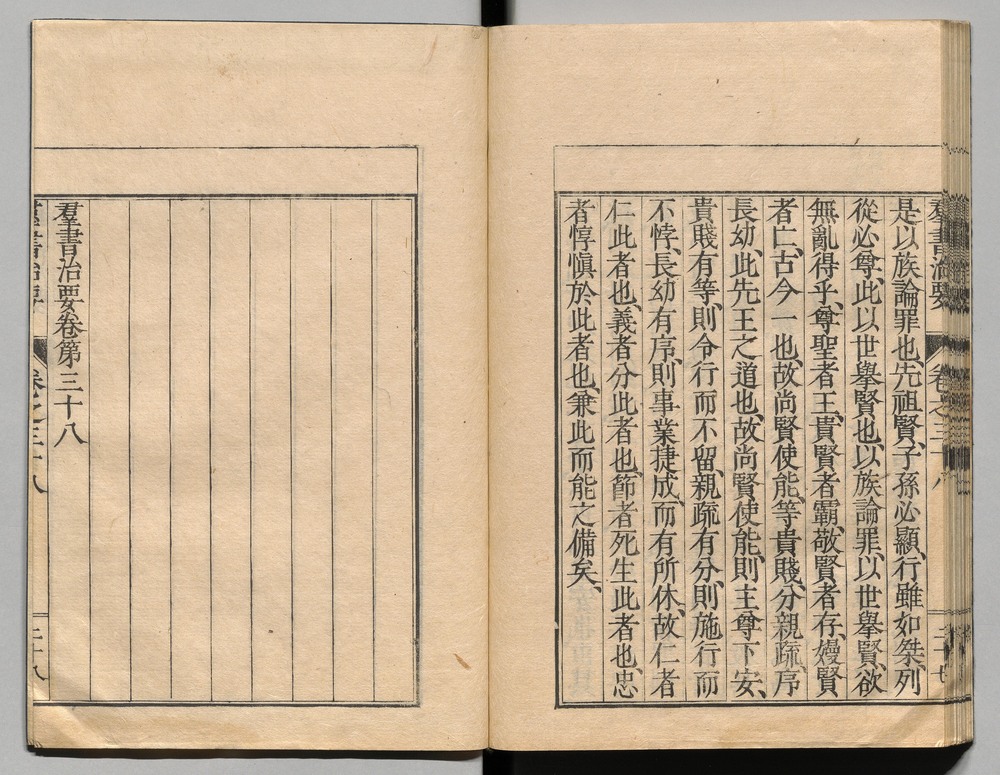 羣書治要 卷之三十八 二十七
是以族論罪也、先祖賢、子孫必顯、行雖如桀、列
從必尊、此以世擧賢也、以族論罪、以世擧賢、欲
無亂得乎、尊聖者王、貴賢者霸、敬賢者存、嫚賢
者亡、古今一也、故尚賢使能、等貴賤、分親疏、序
長幼、此先王之道也、故尚賢使能、則主尊下安、
貴賤有等、則令行而不留、親疏有分、則施行而
不悖、長幼有序、則事業捷成、而有所休、故仁者
仁此者也、義者分此者也、節者死生此者也、忠
者惇愼於此者也、兼此而能之備矣、
羣書治要卷第三十八
羣書治要 卷之三十八 二十八